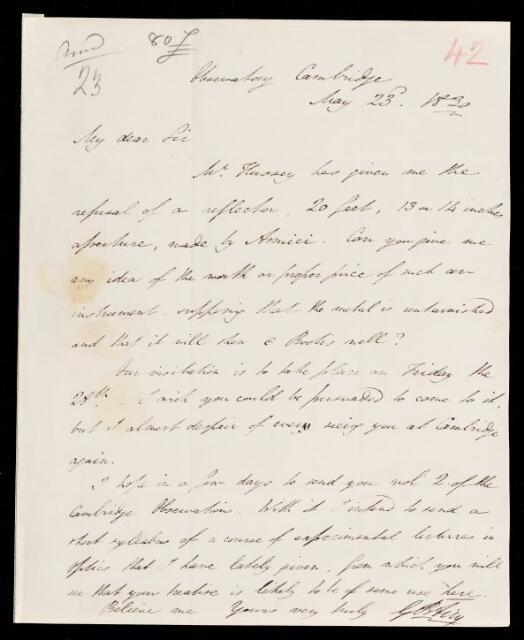 23
42
Observatory Cambridge
May 23d. 1830
My dear Sir
Mr. Hussey has given me the
refusal of a reflector, 20 feet, 13 or 14 inches
aperture, made by Amici. Can you give me
any idea of the worth or proper price of such an
instrument supposing that the metal is untarnished
and that it will shew ε Bootis well?
Our visitation is to take place on Friday the
28th. I wish you could be persuaded to come to it,
but I almost despair of ever seeing you at Cambridge
again.
I hope in a few days to send you vol 2 of the
Cambridge Observations. With it I intend to send a
short syllabus of a course of experimental lectures in
optics that I have lately given, from which you will
see that your treatise is likely to be of some use here.
Believe me Yours very truly G B Airy